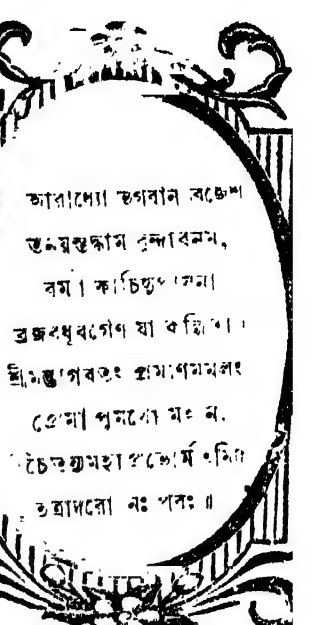 আরাধ্যো ভগবান ব্রজেশ
তনয়স্তদ্ধাম বৃন্দাবনম,
রম্যা কাচিদুপাসনা
ব্রজবধূবর্গেণ যা কল্পিতা ।
শ্রীমদ্ভাগবতং প্রমাণমমলং
প্রেমা পুমর্থো মহান,
শ্রীচৈতন্যমহাপ্রভোর্মতমিদং
তত্রাদরো নঃ পরঃ ॥